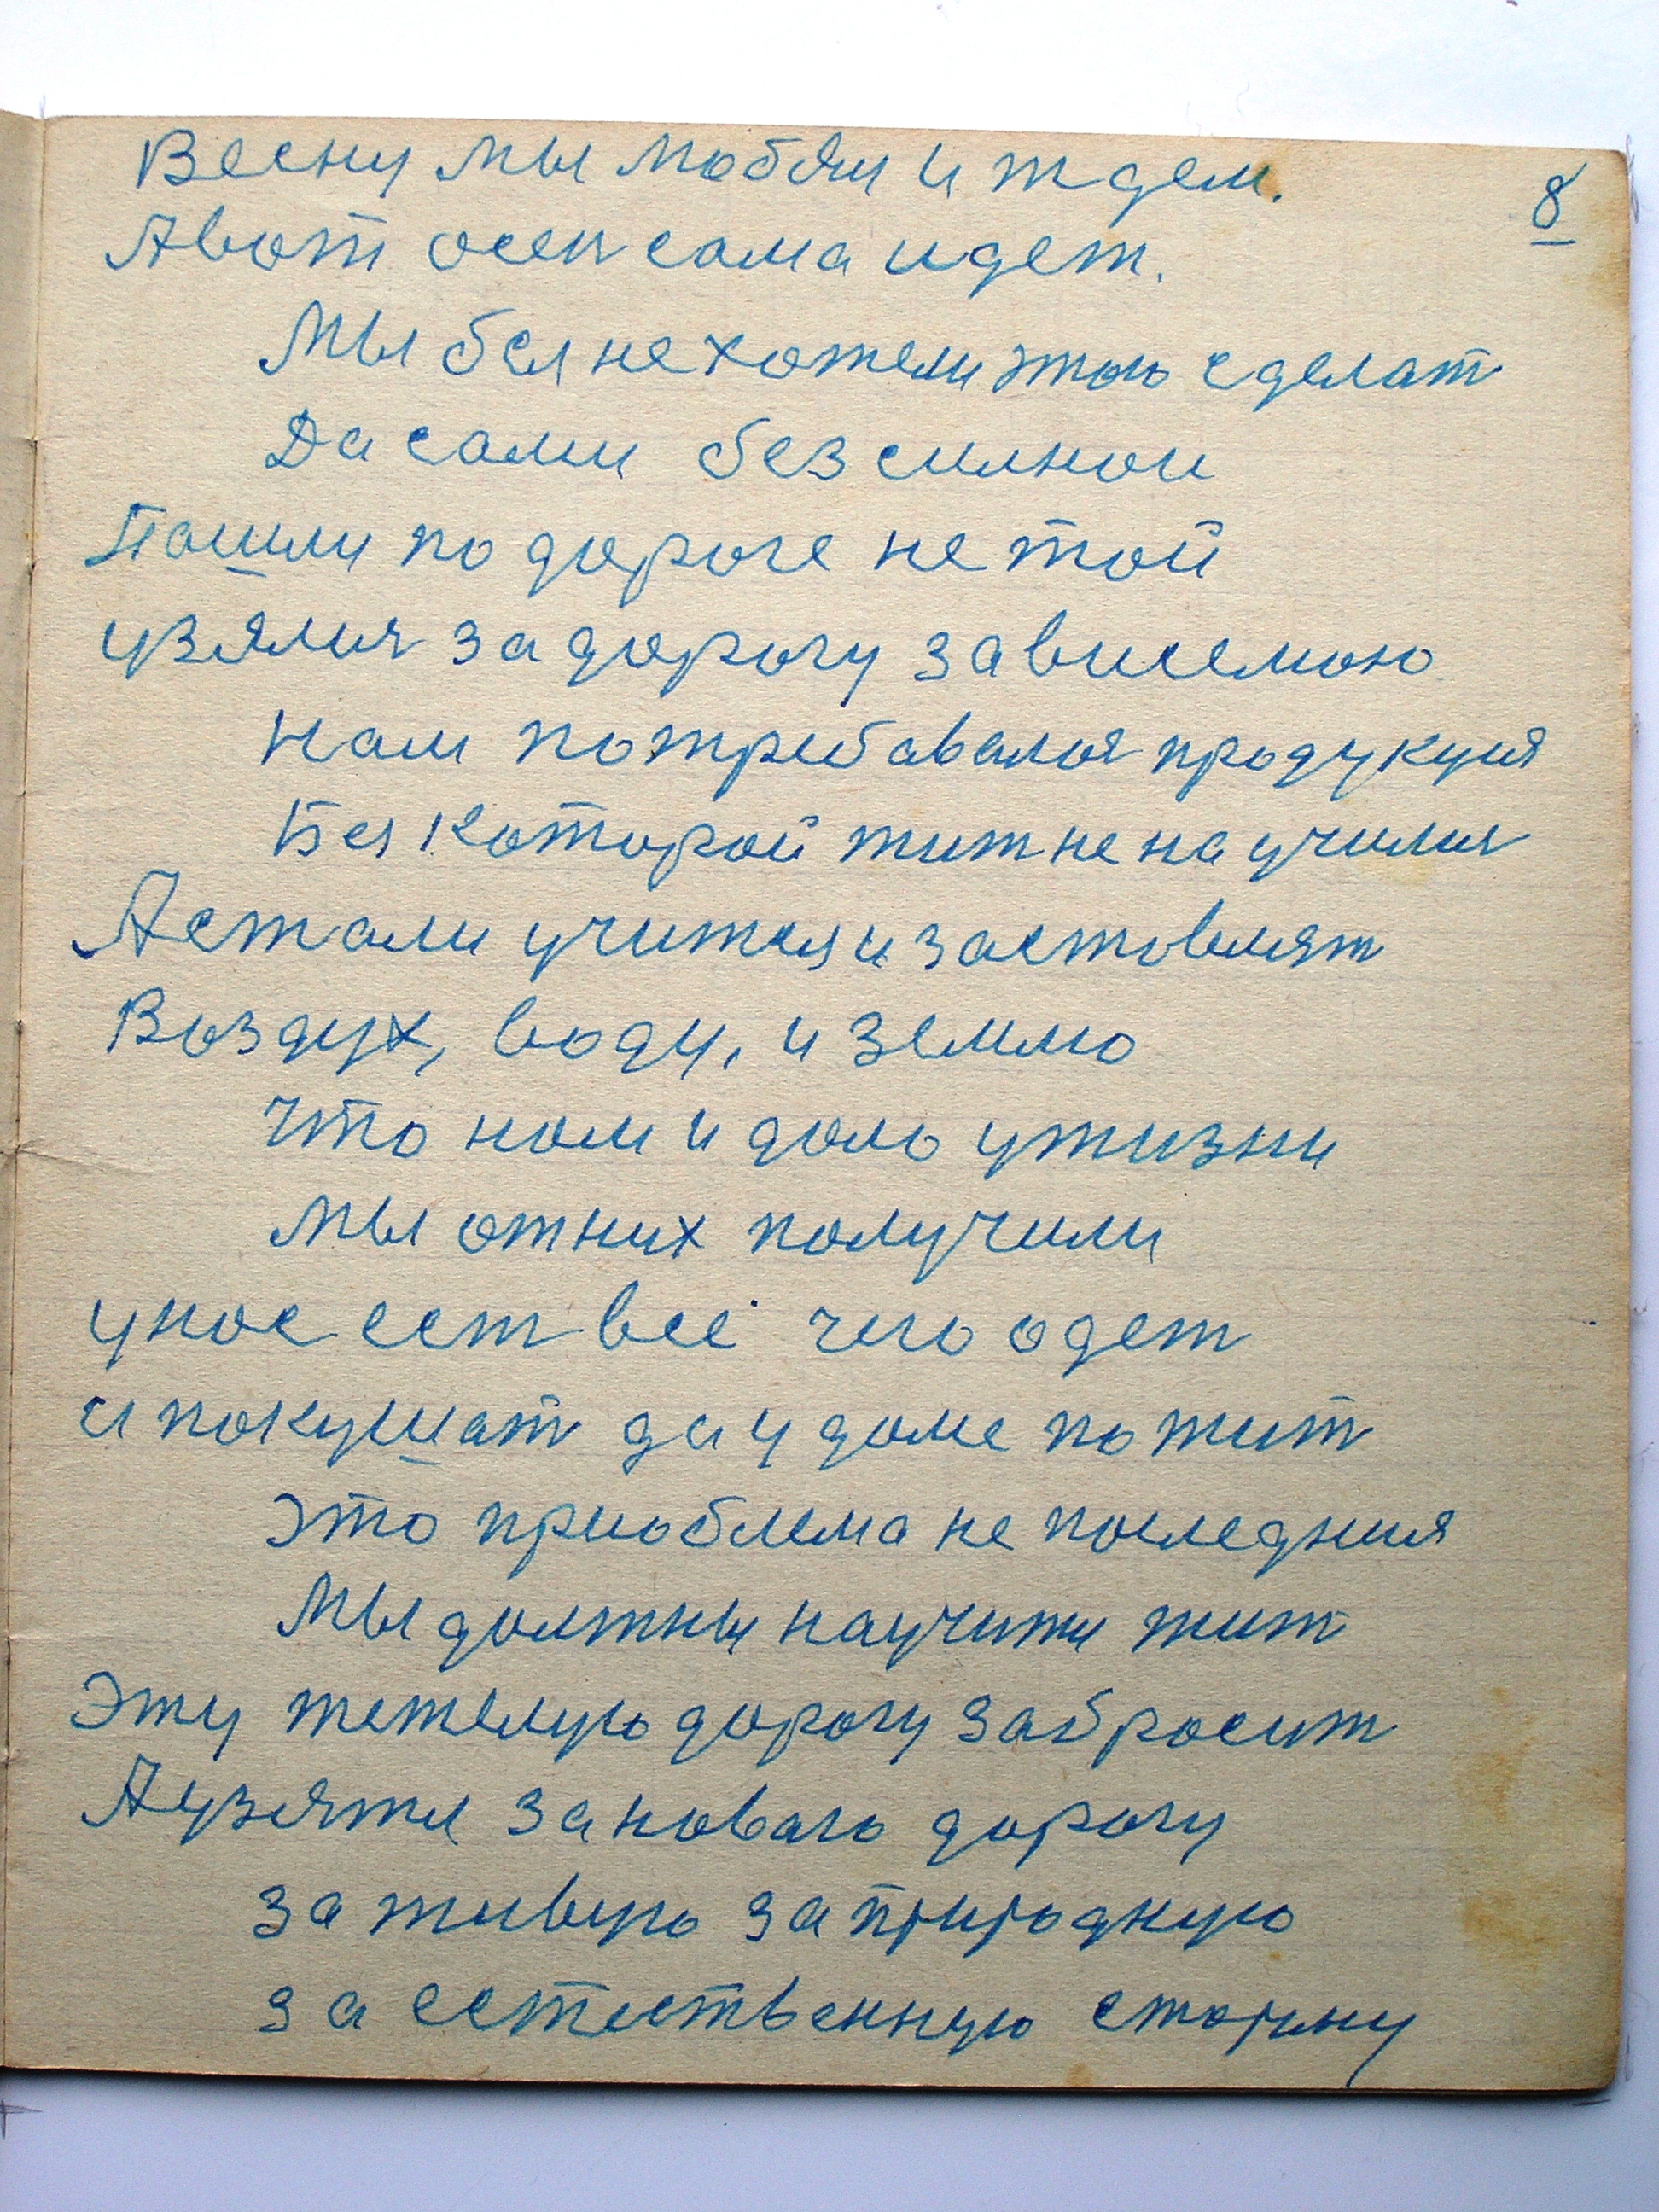 Весну мы любим и ждем.
8
Авот осен сама идет.
Мы бы не хотели этого сделат
Да сами безсилнои
Пошли по дороге не той
узялис за дорогу зависемою
Нам потрибавалас продукция
Без которой жит не научилис
А стали учится и заставлят
Воздух, воду, и землю
Что нам и дало ужизни
Мы отних получили
унас ест всё чего одет
и покушат да у доме пожит
это приоблема не последния
Мы должны научится жит
Эту тяжелую дорогу забросит
А узятся за новаю дорогу
за живую за природную
за естественную сторину